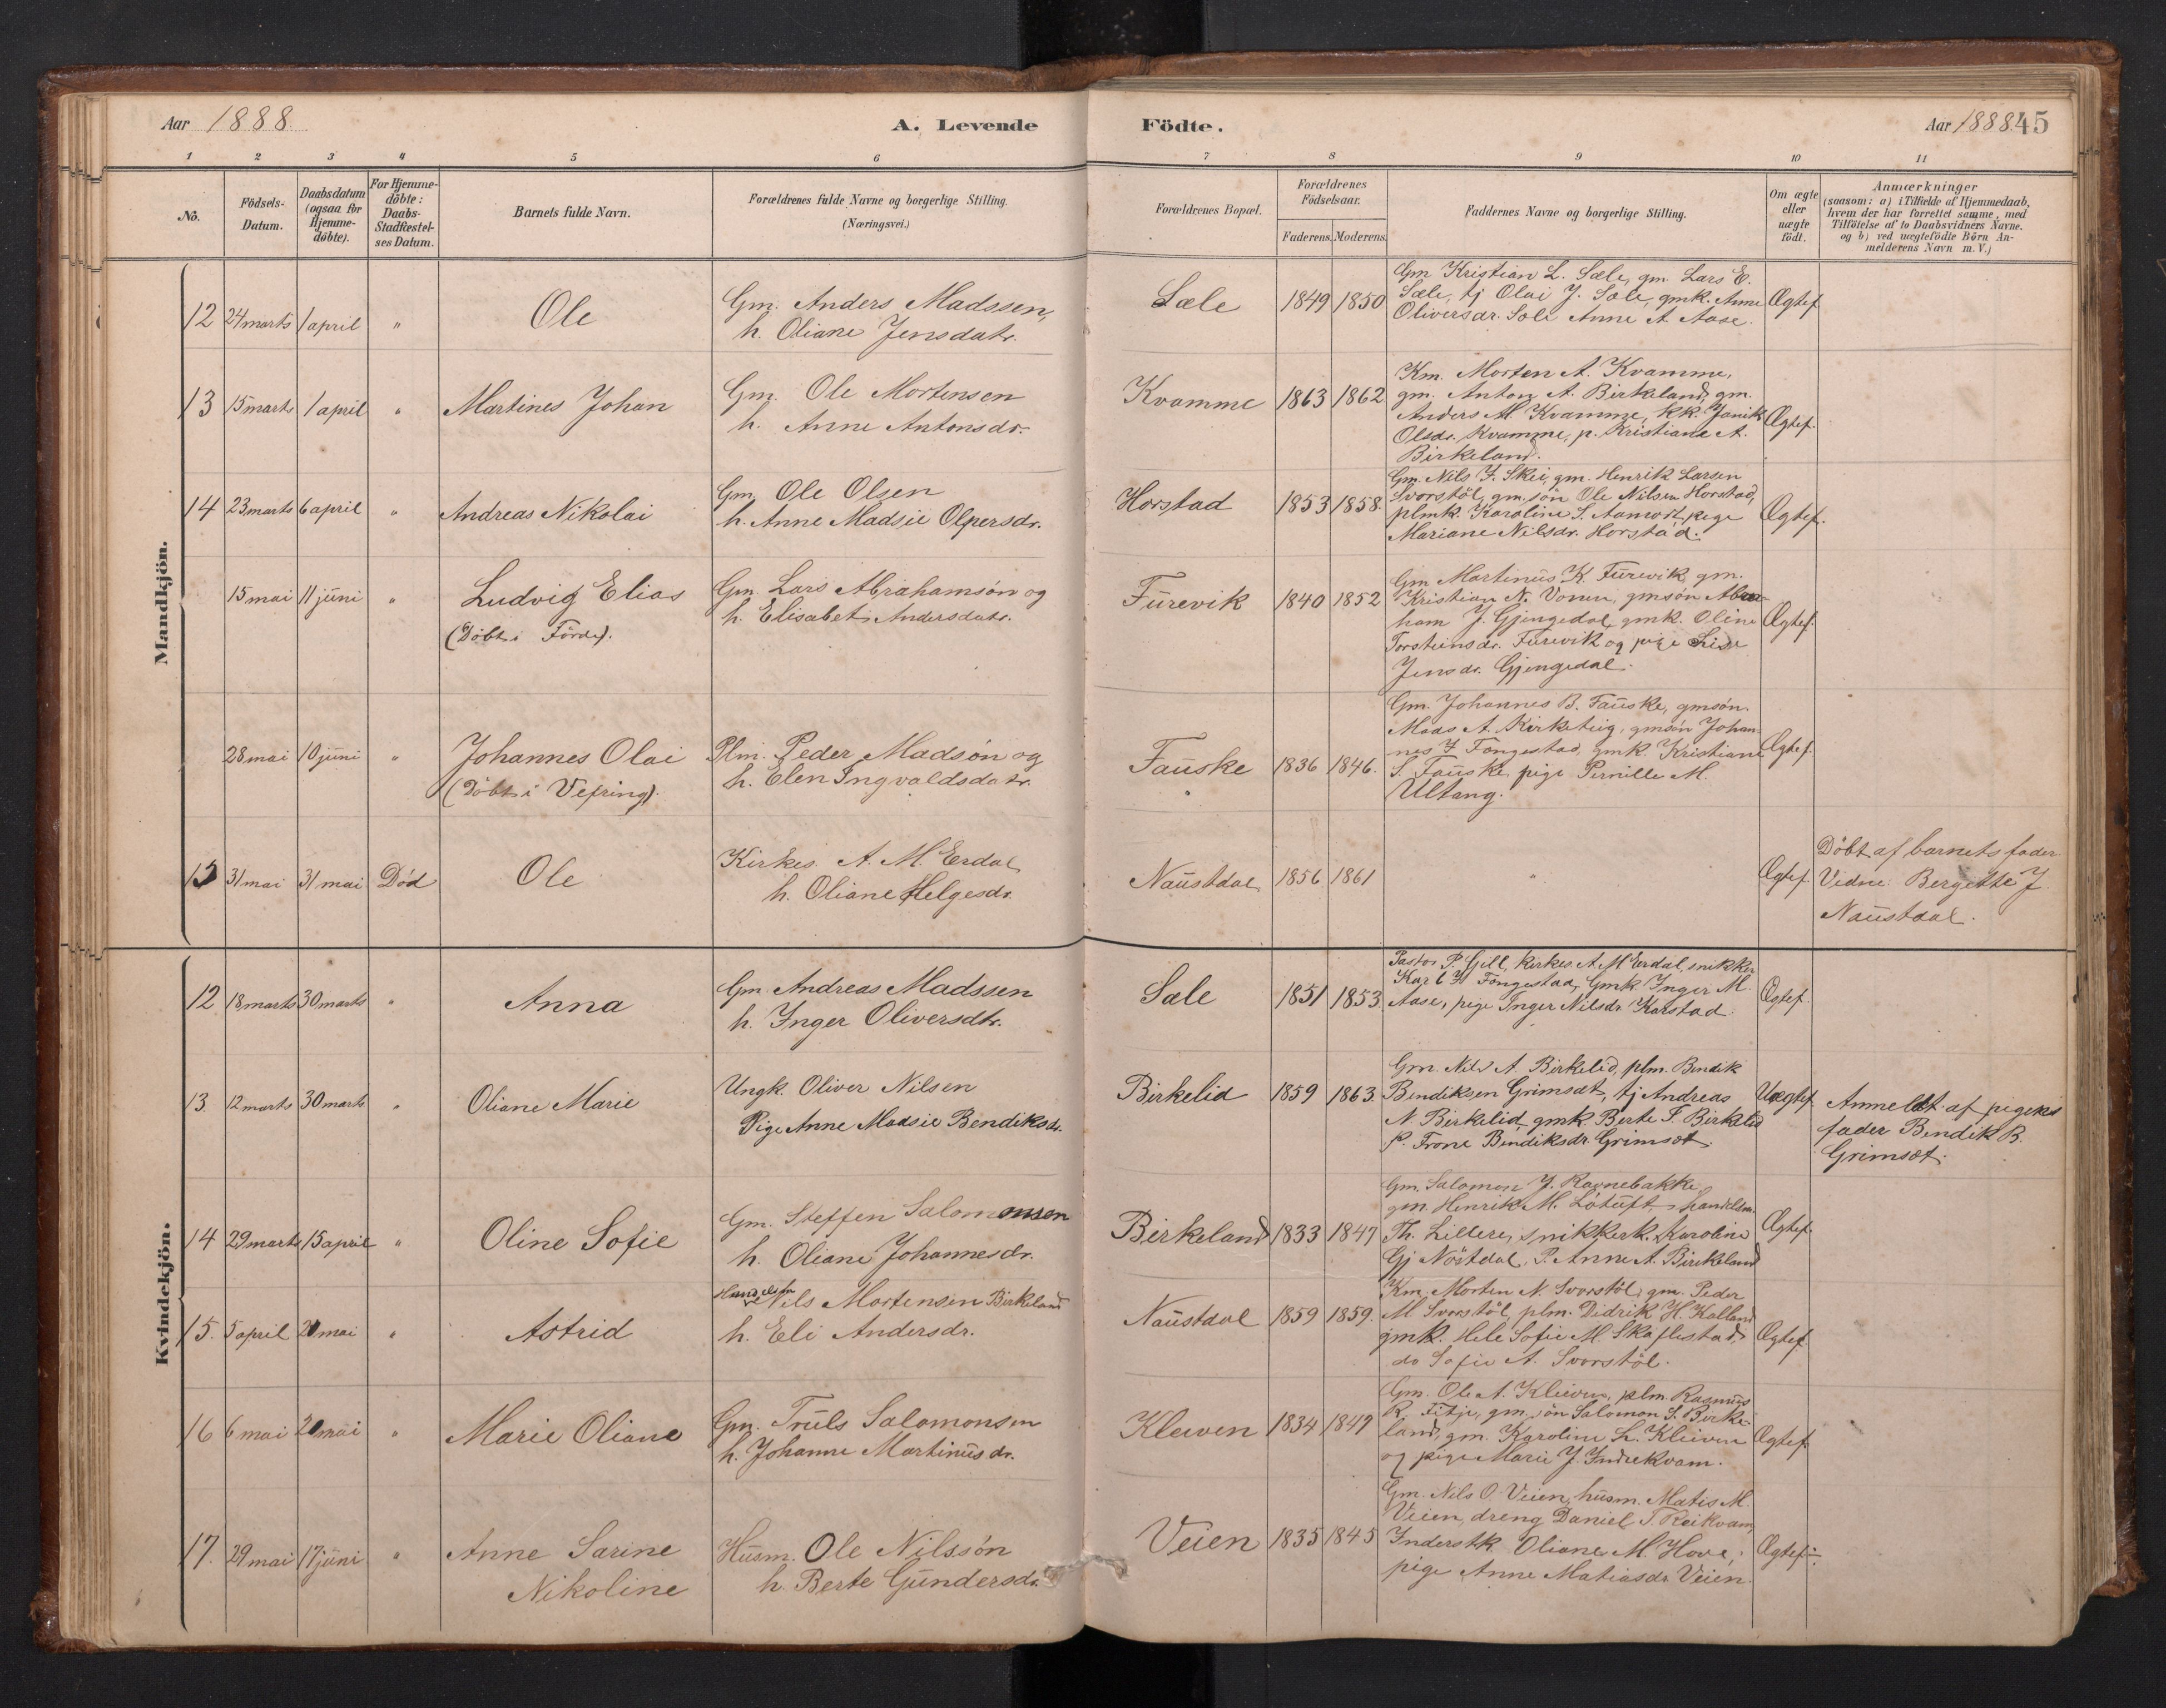 Aar 1888. A. Levende Födte. Aar 1888. 45
1 2 3 4 5 6 7 8 9 10 11
No. Födsels-Datum. Daabsdatum (ogsaa for Hjemme-döbte). For Hjemme-döbte: Daabs-Stadfæstel-ses Datum. Barnets fulde Navn. Forældrenes fulde Navne og borgerlige Stilling. (Næringsvei.) Forældrenes Bopæl. Forældrenes Födselsaar. Faderens. Moderens. Faddernes Navne og borgerlige Stilling. Om ægte eller uægte födt. Anmærkninger (saasom: a) i Tilfælde af Hjemmedaab, hvem der har forrettet samme, med Tilföielse af to Daabsvidners Navne. og b) ved uægtefödte Börn An-melderens Navn m. V.)
Mandkjön.
12 24 marts 1 april " Ole
Gm. Anders Madssen,
h. Oliane Jensdatr.
Sæle 1849 1850
Gm Kristian L. Sæle, gm. Lars E.
Sæle, tj Olai J. Sæle, gmk. Anne
Oliversdr. Sæle Anne A Aase.
Ægtef
13 15 marts 1 april " Martines Johan
Gm. Ole Mortensen
h. Anne Antonsdr.
Kvamme 1863 1862
Km. Morten A. Kvamme,
gm. Anton A. Birkeland, gm.
Anders M Kvamme, kk. Janik
Olsdr. Kvamme, p. Kristiane A.
Birkeland.
Ægtef.
14 23 marts 6 april " Andreas Nikolai
Gm. Ole Olsen
h. Anne Madsie Olpersdr.
Horstad 1853 1858.
Gm. Nils J. Skei, gm. Henrik Larsen
Svorstöl, gm.sön Ole Nilsen Horstad,
plmk. Karoline S. pige
Mariane Nilsdr. Horstad.
Ægtef.
15 mai 11 juni " Ludvig Elias
(Döbt i Förde).
Gm. Lars Abrahamsön og
h. Elisabet Andersdatr.
Furevik 1840 1852
Gm Martinus K. Furevik, gm.
Kristian N. Vonen, gmsön Abra-
ham J. Gjengedal, gmk. Oline
Torsteinsdr. Furevik og pige Lise
Jensdr. Gjengedal.
Ægtef.
28 mai 10 juni " Johannes Olai
(Döbt i Vefring).
Plm. Peder Madsön og
h. Elen Ingvaldsdatr.
Fauske 1836 1846.
Gm. Johannes B. Fauske, gmsön
Mads A. Kirketeig, gmsön Johan-
nes J Fongestad, gmk. Kristiane
S. Fauske, pige Pernille M.
Ultang.
Ægtef.
15 31 mai 31 mai Död Ole
Kirkes. A. M. Erdal
h. Oliane Helgesdr.
Naustdal 1856 1861 " Ægtef.
Döbt af barnets fader
Vidne: Bergitte J
Naustdal.
Kvindekjön.
12 18 marts 30 marts " Anna
Gm. Andreas Madssen
h. Inger Oliversdtr.
Sæle 1851 1853.
Pastor P. Gill, kirkes A. M Erdal, snikker
Karl H Fongestad, Gmk Inger M.
Aase, pige Inger Nilsdr Karstad.
Ægtef.
13. 12 marts 30 marts " Oliane Marie
Ungk. Oliver Nilsen
Pige Anne Madsie Bendiksdr.
Birkelid 1859 1863.
Gm. Nils A. Birkelid, plm. Bendik
Bendiksen Grimsæt, tj Andreas
N Birkelid, gmk. Berte F. Birkelid
P. Trone Bendiksdr Grimsæt.
Uægtef.
Anmeldt af pigens
fader Bendik B.
Grimsæt.
14 29 marts 15 april " Oline Sofie
Gm. Steffen Salomonsen
h. Oliane Johannesdr.
Birkeland 1833 1847
Gm. Salomon J. Ravnebakke,
gm. Henrik M. Lötuft, handelsm.
Th. Lillere, snikkerk. Karoline
Gj Nöstdal, P. Anne A. Birkeland
Ægtef.
15. 5 april 21 mai " Astrid
Handelsm Nils Mortensen Birkeland
h. Eli Andersdr.
Naustdal 1859 1859.
Km. Morten N. Svorstöl, gm. Peder
M Svorstöl, plm. Didrik H. Kalland
gmk. Hele Sofie M Skaflestad,
do Sofie A. Svorstöl.
Ægtef.
16 6 mai 20 mai " Marie Oliane
Gm. Truls Salomonsen
h. Johanne Martinusdr.
Kleiven 1834 1849
Gm. Ole A. Kleiven, plm. Rasmus
R. Fitje, gm.sön Salomon S. Birke-
land, gm. Karoline L. Kleiven
og pige Marie J. Indrekvam.
Ægtef.
17. 29 mai 17 juni " Anne Sarine
Nikoline
Husm. Ole Nilssön
h. Berte Gundersdr.
Veien 1835 1845
Gm. Nils O. Veien, husm. Matis M.
Veien, dreng Daniel T Reikvam,
Inderstk Oliane M. Hove,
pige Anne Matiasdr Veien.
Ægtef.